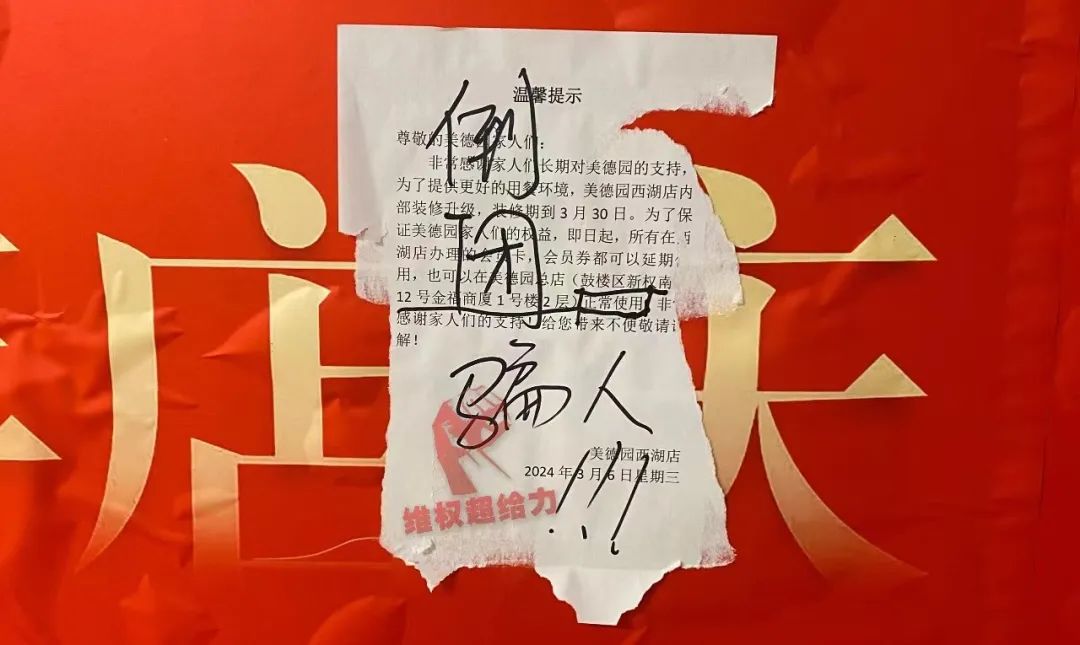 温馨提示
尊敬的美德园家人们：
非常感谢家人们长期对美德园的支持，
为了提供更好的用餐环境，美德园西湖店内
部装修升级，装修期到3月30日。为了保
证美德园家人们的权益，即日起，所有在西
湖店办理的会员卡，会员券都可以延期
用，也可以在美德园总店（鼓楼区新权南
12号金福商厦1号楼2层）正常使用，非
感谢家人们的支持！给您带来不便敬请
解！
美德园西湖店
2024年3月6日星期三
倒
闭
骗人
!!!
维权超给力
店庆